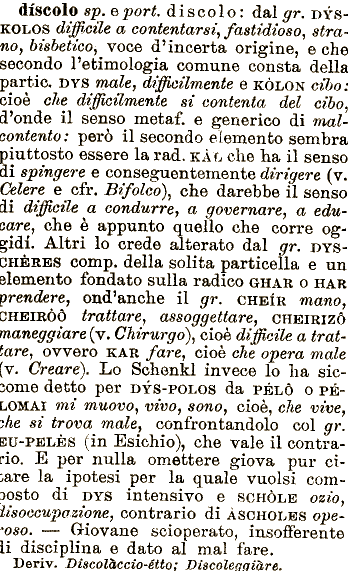 díscolo sp. e port. discolo: dal gr. DÝS-
KOLOS difficile a contentarsi, fastidioso, stra-
no, bisbetico, voce d'incerta origine, e che
secondo l'etimologia comune consta della
partic. DYS male, difficilmente e KÒLON cibo:
cioè che difficilmente si contenta del cibo,
d'onde il senso metaf. e generico di mal-
contento: però il secondo elemento sembra
piuttosto essere la rad. KAL che ha il senso
di spingere e conseguentemente dirigere (v.
Celere e cfr. Bifolco), che darebbe il senso
di difficile a condurre, a governare, a edu-
care, che è appunto quello che corre og-
gidí. Altri lo crede alterato dal gr. DYS-
CHÈRES comp. della solita particella e un
elemento fondato sulla radico GHAR O HAR
prendere, ond'anche il gr. CHEÍR mano,
CHEIRÒÔ trattare, assoggettare, CHEIRIZÔ
maneggiare (v. Chirurgo), cioè difficile a trat-
tare, ovvero KAR fare, cioè che opera male
(v. Creare). Lo Schenkl invece lo ha sic-
come detto per DÝS-POLOS da PÉLÔ O PÉ-
LOMAI mi muovo, vivo, sono, cioè, che vive,
che si trova male, confrontandolo col gr.
EU-PELÈS (in Esichio), che vale il contra-
rio. E per nulla omettere giova pur ci-
tare la ipotesi per la quale vuolsi com-
posto di DYS intensivo e SCHÒLE ozio,
disoccupazione, contrario di ÀSCHOLES ope-
roso. — Giovane scioperato, insofferente
di disciplina e dato al mal fare.
Deriv. Discolàccio-étto; Discoleggiàre.